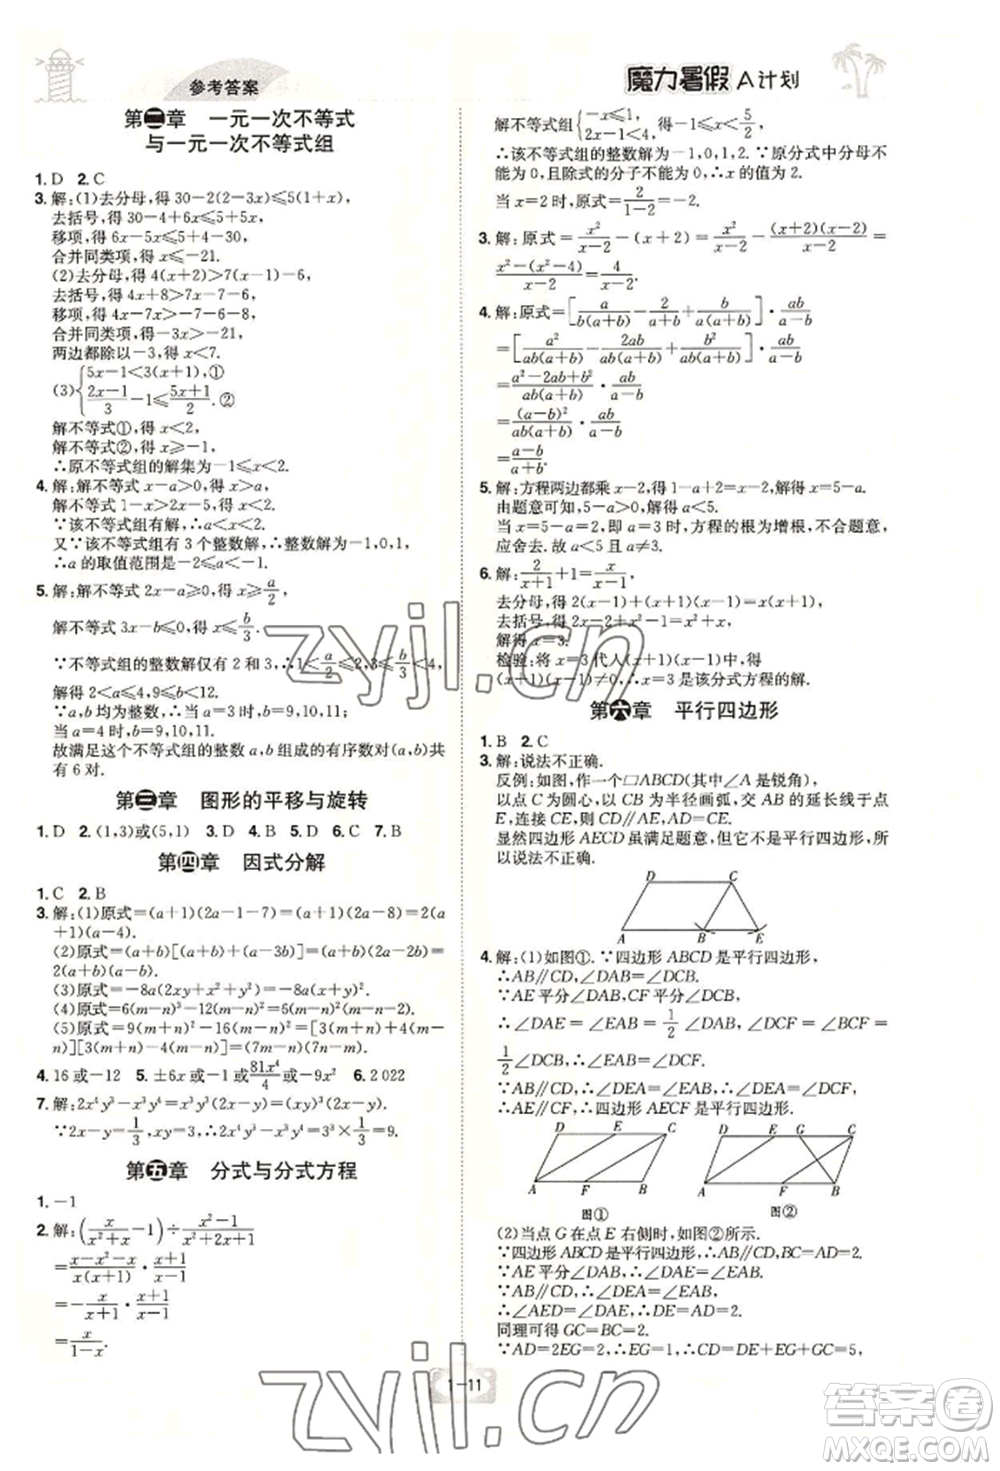 参考答案
魔力暑假 A计划
第二章 一元一次不等式
与一元一次不等式组
1. D 2. C
3. 解:(1)去分母,得 30-2(2-3x)≤5(1+x),
去括号,得 30-4+6x≤5+5x,
移项,得 6x-5x≤5+4-30,
合并同类项,得 x≤-21.
(2)去分母,得 4(x+2)>7(x-1)-6,
去括号,得 4x+8>7x-7-6,
移项,得 4x-7x>-7-6-8,
合并同类项,得-3x>-21,
两边都除以-3,得 x<7.
(3){5x-1<3(x+1),①
(2x-1)/3-1≤(5x+1)/2.②
解不等式①,得 x<2,
解不等式②,得 x≥-1,
∴原不等式组的解集为-1≤x<2.
4. 解:解不等式 x-a>0,得 x>a,
解不等式 1-x>2x-5,得 x<2.
∵该不等式组有解,∴a<x<2.
又∵该不等式组有 3 个整数解,∴整数解为-1,0,1.
∴a 的取值范围为-2≤a<-1.
5. 解:解不等式 2x-a≥0,得 x≥a/2,
解不等式 3x-b≤0,得 x≤b/3.
∵不等式组的整数解仅有 2 和 3,∴1<a/2≤2,3≤b/3<4,
解得 2<a≤4,9≤b<12.
∵a,b 均为整数,∴当 a=3 时,b=9,10,11;
当 a=4 时,b=9,10,11.
故满足这个不等式组的整数 a,b 组成的有序数对(a,b)共
有 6 对.
第三章 图形的平移与旋转
1. D 2. (1,3)或(5,1) 3. D 4. D 5. D 6. C 7. D
第四章 因式分解
1. C 2. B
3. 解:(1)原式=(a+1)(2a-1-7)=(a+1)(2a-8)=2(a
+1)(a-4).
(2)原式=(a+b)[(a+b)+(a-3b)]=(a+b)(2a-2b)=
2(a+b)(a-b).
(3)原式=-8a(2xy+x²+y²)=-8a(x+y)².
(4)原式=6(m-n)³+12(m-n)²=6(m-n)²(m-n+2).
(5)原式=9(m+n)²-(m-n)²=[3(m+n)+(m-
n)][3(m+n)-(m-n)]=4(2m+n)(m+2n).
4. 16 或-12 5. ±6x 或-1 或-9x² 或 81x⁴/4 6. 2 022
7. 解:2x⁴y³-x³y⁴=x³y³(2x-y)=(xy)³(2x-y).
∵2x-y=1/3,xy=3,∴原式=3³×1/3=9.
第五章 分式与分式方程
1. -1
2. 解:(x/(x²+x)-1)÷(x²-1)/(x²+2x+1)
=(x-x²-x)/(x(x+1))·(x+1)/(x-1)
=-x/(x+1)·(x+1)/(x-1)
=x/(1-x).
解不等式组{-x≤1,
2x-1<4,得-1≤x<5/2,
∴该不等式组的整数解为-1,0,1,2.∵原分式中分母不
能为 0,且除式的分子不能为 0,∴x 的值为 2.
当 x=2 时,原式=2/(1-2)=-2.
3. 解:原式=x²/(x-2)-(x+2)=x²/(x-2)-(x+2)(x-2)/(x-2)
=(x²-(x²-4))/(x-2)=4/(x-2).
4. 解:原式=[a/(b(a+b))-2/(a+b)+b/(a(a+b))]·ab/(a-b)
=[a²/(ab(a+b))-2ab/(ab(a+b))+b²/(ab(a+b))]·ab/(a-b)
=(a²-2ab+b²)/(ab(a+b))·ab/(a-b)
=(a-b)²/(ab(a+b))·ab/(a-b)
=(a-b)/(a+b).
5. 解:方程两边都乘 x-2,得 1-a+2=x-2,解得 x=5-a.
由题意可知,5-a>0,解得 a<5.
当 x=5-a=2,即 a=3 时,方程的根为增根,不合题意,
应舍去.因此 a<5 且 a≠3.
6. 解:2/(x+1)+1=x/(x-1),
去分母,得 2(x-1)+(x-1)(x+1)=x(x+1),
去括号,得 2x-2+x²-1=x²+x,
解得 x=3.
检验:将 x=3 代入(x+1)(x-1),得
(x+1)(x-1)≠0,∴x=3 是该分式方程的解.
第六章 平行四边形
1. B 2. C
3. 解:说法不正确.
反例:如图,作一个□ABCD(其中∠A 是锐角),
以点 C 为圆心,以 CB 为半径画弧,交 AB 的延长线于点
E,连接 CE,则 DC∥AE,AD=CE.
显然四边形 AECD 虽满足题意,但它不是平行四边形,所
以说法不正确.
D C
A B E
4. 解:(1)如图①.∵四边形 ABCD 是平行四边形,
∴AB∥CD,∠DAB=∠DCB.
∵AE 平分∠DAB,CF 平分∠DCB,
∴∠DAE=∠EAB=1/2∠DAB,∠DCF=∠BCF=
1/2∠DCB,∴∠EAB=∠DCF.
∵AB∥CD,∴∠DCF=∠CFB,∴∠EAB=∠CFB,
∴AE∥CF,∴四边形 AECF 是平行四边形.
D E C
A F B
图①
D E G C
A F B
图②
(2)当点 G 在点 E 右侧时,如图②所示.
∵四边形 ABCD 是平行四边形,∴AD=BC=2.
∵AE 平分∠DAB,∴∠DAE=∠BAE.
∵AB∥CD,∴∠DEA=∠BAE,
∴∠AED=∠DAE,∴DE=AD=2.
同理可得 GC=BC=2.
∵AD=2EG=2,∴EG=1,∴CD=2+2+1=5,
1-11
zyjl.cn
zyjl.cn
答案圈
MXQE.COM